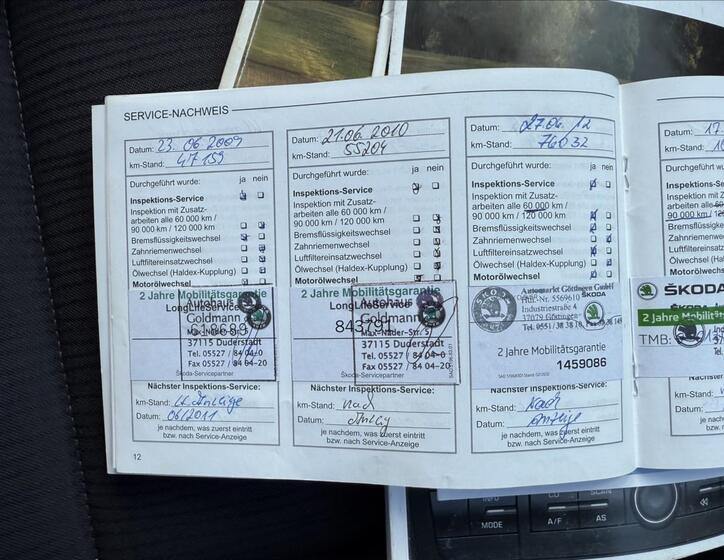 SERVICE-NACHWEIS
Datum: 23.06.2009
km-Stand: 47159
Durchgeführt wurde: ja nein
Inspektions-Service
Inspektion mit Zusatz-
arbeiten alle 60 000 km /
90 000 km / 120 000 km
Bremsflüssigkeitswechsel
Zahnriemenwechsel
Luftfiltereinsatzwechsel
Ölwechsel (Haldex-Kupplung)
Motorölwechsel
2 Jahre Mobilitätsgarantie
LongLifeService
Autohaus
Goldmann
37115 Duderstadt
Tel. 05527 / 84 04-0
Fax 05527 / 84 04-20
Škoda-Servicepartner
Nächster Inspektions-Service:
km-Stand:
Datum: 06/2011
je nachdem, was zuerst eintrifft
bzw. nach Service-Anzeige
12
Datum: 21.06.2010
km-Stand: 55204
Durchgeführt wurde: ja nein
Inspektions-Service
Inspektion mit Zusatz-
arbeiten alle 60 000 km /
90 000 km / 120 000 km
Bremsflüssigkeitswechsel
Zahnriemenwechsel
Luftfiltereinsatzwechsel
Ölwechsel (Haldex-Kupplung)
Motorölwechsel
2 Jahre Mobilitätsgarantie
LongLifeService
Autohaus
Goldmann
Max-Näder-Str.
37115 Duderstadt
Tel. 05527 / 84 04-0
Fax 05527 / 84 04-20
Škoda-Servicepartner
Nächster Inspektions-Service:
km-Stand: nach
Datum:
je nachdem, was zuerst eintrifft
bzw. nach Service-Anzeige
Datum: 27.06./12
km-Stand: 76032
Durchgeführt wurde: ja nein
Inspektions-Service
Inspektion mit Zusatz-
arbeiten alle 60 000 km /
90 000 km / 120 000 km
Bremsflüssigkeitswechsel
Zahnriemenwechsel
Luftfiltereinsatzwechsel
Ölwechsel (Haldex-Kupplung)
Motorölwechsel
Automarkt Göttingen GmbH
Hdl.-Nr. 5569610
Industriestraße
37079 Göttingen
ŠKODA
2 Jahre Mobilitätsgarantie
1459086
Nächster Inspektions-Service:
km-Stand: Nach
Datum: Anzeige
je nachdem, was zuerst eintrifft
bzw. nach Service-Anzeige
ŠKODA
2 Jahre Mobilitäts
TMB:
MODE
A/F
AS